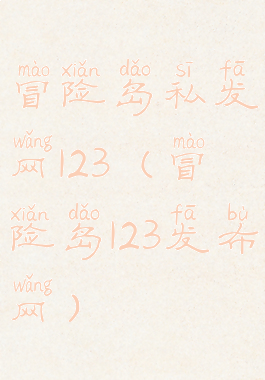 mào xiǎn dǎo sī fā
冒险岛私发
wǎng mào
网123（冒
xiǎn dǎo fā bù
险岛123发布
wǎng
网）